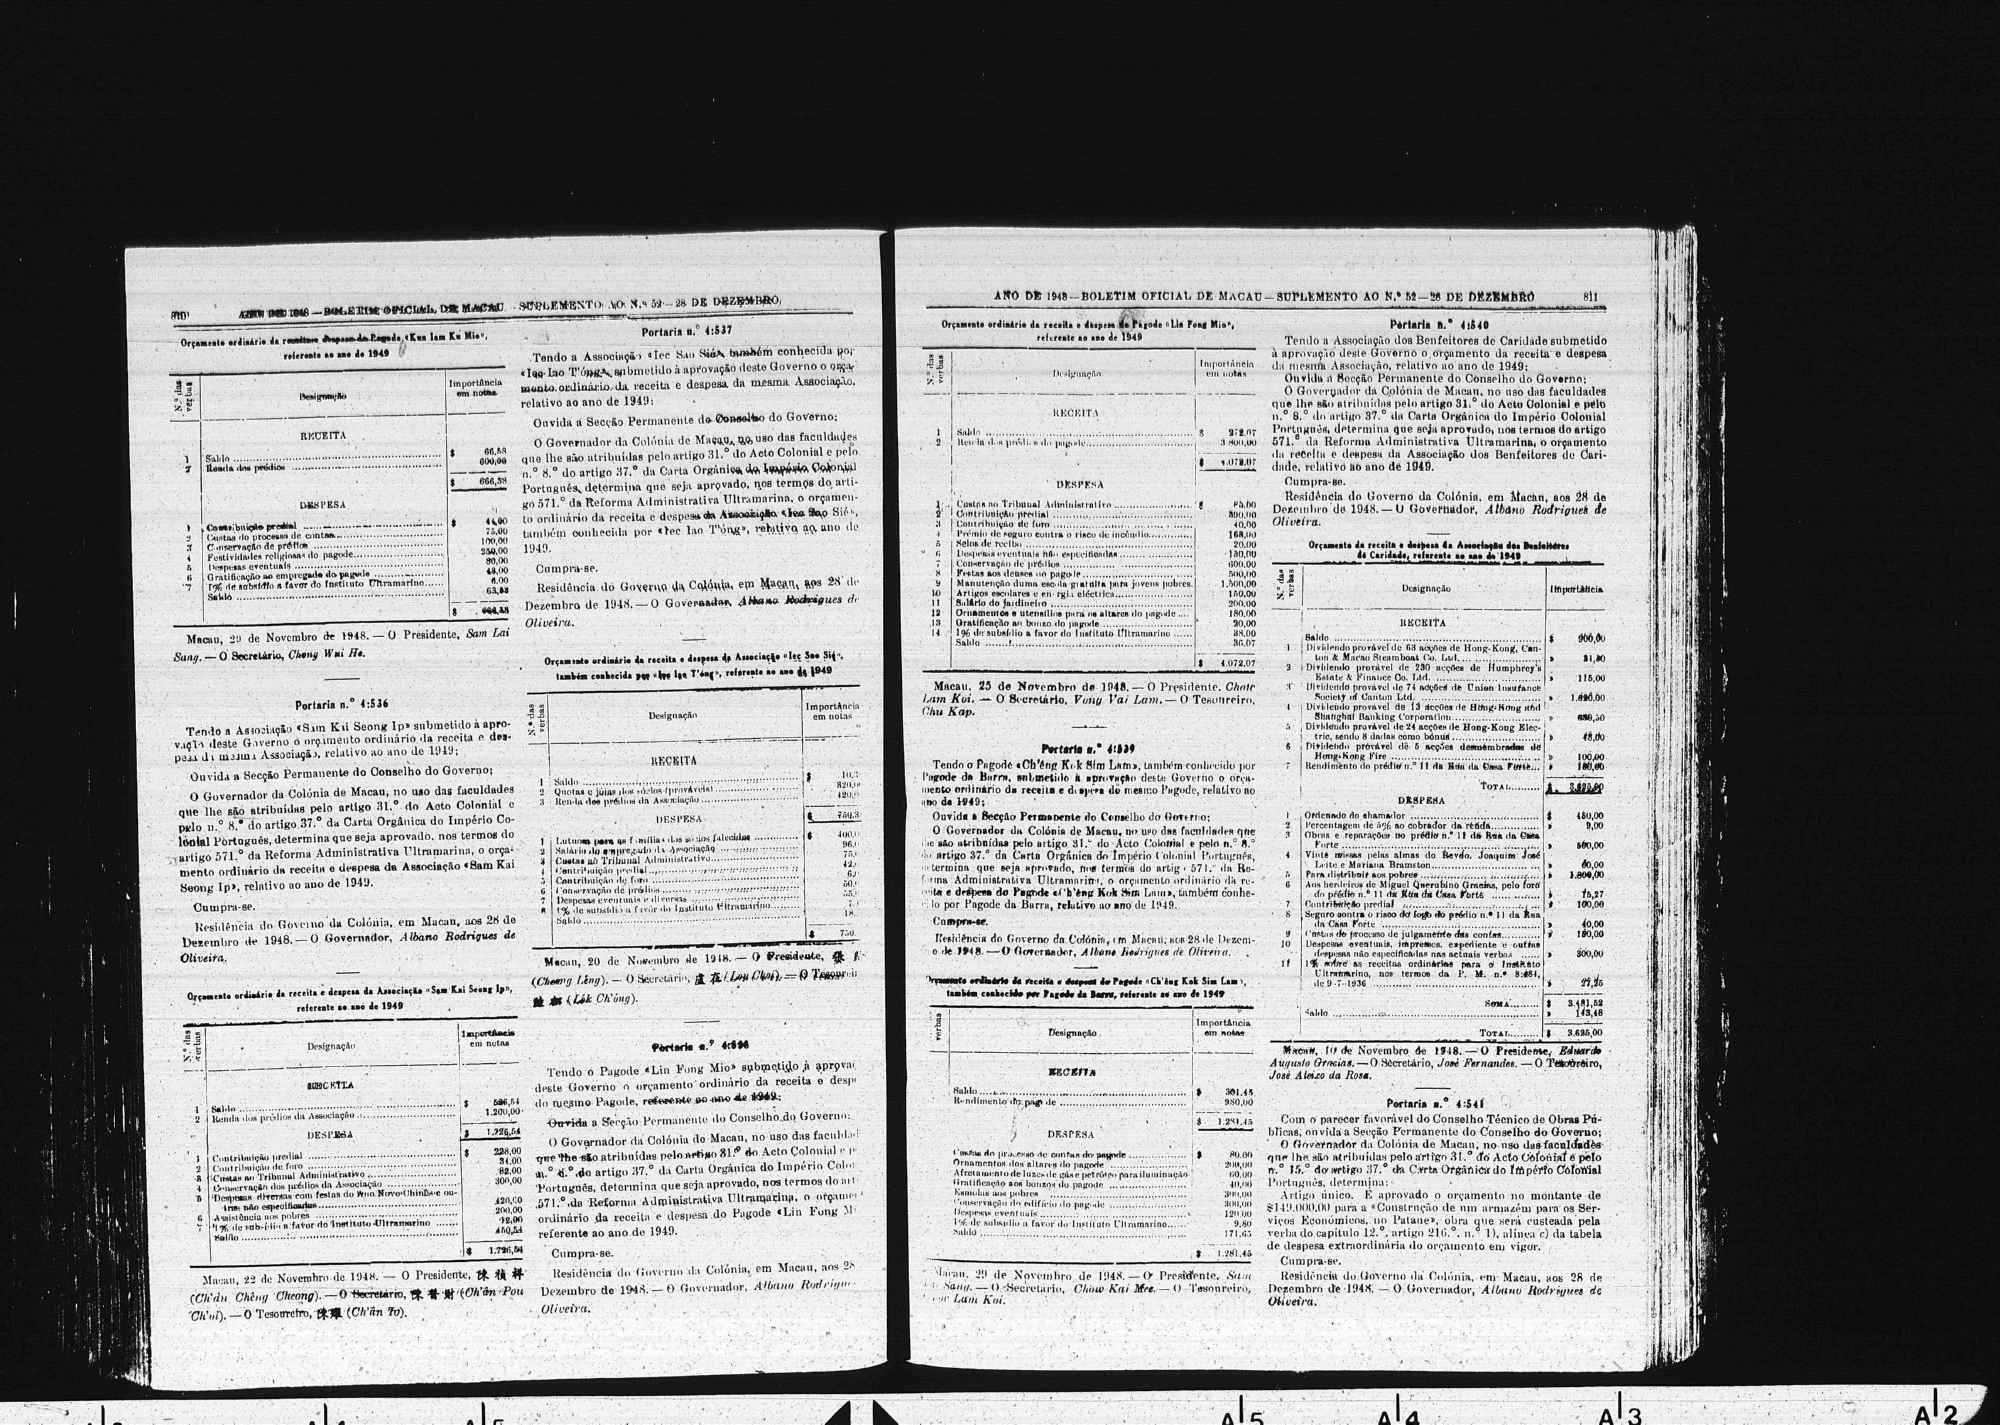 810 ANO DE 1948 — BOLETIM OFICIAL DE MACAU — SUPLEMENTO AO N.º 52 — 28 DE DEZEMBRO
Orçamento ordinário da receita e despesa do Pagode «Kun Iam Ku Mio»,
referente ao ano de 1949
N.º das verbas
Designação
Importância em notas
RECEITA
1 Saldo $ 66,58
2 Renda dos prédios 600,00
$ 666,58
DESPESA
1 Contribuição predial $ 44,00
2 Custas do processo de contas 75,00
3 Conservação de prédios 100,00
4 Festividades religiosas do pagode 250,00
5 Despesas eventuais 80,00
6 Gratificação ao empregado do pagode 48,00
7 1% de subsídio a favor do Instituto Ultramarino 6,00
Saldo 63,58
$ 666,58
Macau, 29 de Novembro de 1948. — O Presidente, Sam Lai
Sang. — O Secretário, Chong Wai Ho.
Portaria n.º 4:536
Tendo a Associação «Sam Kai Seong Ip» submetido à apro-
vação deste Governo o orçamento ordinário da receita e des-
pesa da mesma Associação, relativo ao ano de 1949;
Ouvida a Secção Permanente do Conselho do Governo;
O Governador da Colónia de Macau, no uso das faculdades
que lhe são atribuídas pelo artigo 31.º do Acto Colonial e
pelo n.º 8.º do artigo 37.º da Carta Orgânica do Império Co-
lonial Português, determina que seja aprovado, nos termos do
artigo 571.º da Reforma Administrativa Ultramarina, o orça-
mento ordinário da receita e despesa da Associação «Sam Kai
Seong Ip», relativo ao ano de 1949.
Cumpra-se.
Residência do Governo da Colónia, em Macau, aos 28 de
Dezembro de 1948. — O Governador, Albano Rodrigues de
Oliveira.
Orçamento ordinário da receita e despesa da Associação «Sam Kai Seong Ip»,
referente ao ano de 1949
N.º das verbas
Designação
Importância em notas
RECEITA
1 Saldo $ 526,54
2 Renda dos prédios da Associação 1.200,00
$ 1.726,54
DESPESA
1 Contribuição predial $ 228,00
2 Contribuição de foro 34,00
3 Custas ao Tribunal Administrativo 82,00
4 Conservação dos prédios da Associação 300,00
5 Despesas diversas com festas do Ano Novo Chinês e ou-
tras não especificadas 420,00
6 Assistência aos pobres 200,00
7 1% de subsídio a favor do Instituto Ultramarino 12,00
Saldo 450,54
$ 1.726,54
Macau, 22 de Novembro de 1948. — O Presidente, 陳禎祥
(Ch'ân Chêng Cheong). — O Secretário, (Ch'ân Pou
Ch'oi). — O Tesoureiro, (Ch'ân Io).
Portaria n.º 4:537
Tendo a Associação «Iec Sao Sié», também conhecida por
«Iec Iao T'óng», submetido à aprovação deste Governo o orça-
mento ordinário da receita e despesa da mesma Associação,
relativo ao ano de 1949;
Ouvida a Secção Permanente do Conselho do Governo;
O Governador da Colónia de Macau, no uso das faculdades
que lhe são atribuídas pelo artigo 31.º do Acto Colonial e pelo
n.º 8.º do artigo 37.º da Carta Orgânica do Império Colonial
Português, determina que seja aprovado, nos termos do arti-
go 571.º da Reforma Administrativa Ultramarina, o orçamen-
to ordinário da receita e despesa da Associação «Iec Sao Sié»,
também conhecida por «Iec Iao T'óng», relativo ao ano de
1949.
Cumpra-se.
Residência do Governo da Colónia, em Macau, aos 28 de
Dezembro de 1948. — O Governador, Albano Rodrigues de
Oliveira.
Orçamento ordinário da receita e despesa da Associação «Iec Sao Sié»,
também conhecida por «Iec Iao T'óng», referente ao ano de 1949
N.º das verbas
Designação
Importância em notas
RECEITA
1 Saldo $ 10,3
2 Quotas e jóias dos sócios (prováveis) 320,0
3 Renda dos prédios da Associação 420,0
$ 750,3
DESPESA
1 Lutuosa para as famílias dos sócios falecidos $ 400,0
2 Salário do empregado da Associação 96,
3 Custas ao Tribunal Administrativo 75,
4 Contribuição predial 42,
5 Contribuição de foro 6,
6 Conservação de prédios 50,
7 Despesas eventuais e diversas 55,
8 1% de subsídio a favor do Instituto Ultramarino 7,
Saldo 18
$ 750
Macau, 20 de Novembro de 1948. — O Presidente, 張
(Cheong Léng). — O Secretário, 盧在 (Lou Choi). — O Tesourei
(Lók Ch'óng).
Portaria n.º 4:538
Tendo o Pagode «Lin Fong Mio» submetido à aprova
deste Governo o orçamento ordinário da receita e desp
do mesmo Pagode, referente ao ano de 1949;
Ouvida a Secção Permanente do Conselho do Governo;
O Governador da Colónia de Macau, no uso das faculdad
que lhe são atribuídas pelo artigo 31.º do Acto Colonial e p
n.º 8.º do artigo 37.º da Carta Orgânica do Império Colon
Português, determina que seja aprovado, nos termos do arti
571.º da Reforma Administrativa Ultramarina, o orçamen
ordinário da receita e despesa do Pagode «Lin Fong M
referente ao ano de 1949.
Cumpra-se.
Residência do Governo da Colónia, em Macau, aos 28
Dezembro de 1948. — O Governador, Albano Rodrigue
Oliveira.
ANO DE 1948 — BOLETIM OFICIAL DE MACAU — SUPLEMENTO AO N.º 52 — 28 DE DEZEMBRO 811
Orçamento ordinário da receita e despesa do Pagode «Lin Fong Mio»,
referente ao ano de 1949
N.º das verbas
Designação
Importância em notas
RECEITA
1 Saldo $ 272,07
2 Renda dos prédios do pagode 3.800,00
$ 4.072,07
DESPESA
1 Custas no Tribunal Administrativo $ 85,00
2 Contribuição predial 390,00
3 Contribuição de foro 40,00
4 Prémio de seguro contra o risco de incêndio 168,00
5 Selos de recibo 20,00
6 Despesas eventuais não especificadas 130,00
7 Conservação de prédios 600,00
8 Festas aos deuses no pagode 500,00
9 Manutenção duma escola gratuita para jovens pobres 1.500,00
10 Artigos escolares e energia eléctrica 150,00
11 Salário do jardineiro 200,00
12 Ornamentos e utensílios para os altares do pagode 180,00
13 Gratificação ao bonzo do pagode 30,00
14 1% de subsídio a favor do Instituto Ultramarino 38,00
Saldo 36,07
$ 4.072,07
Macau, 25 de Novembro de 1948. — O Presidente, Chow
Lam Koi. — O Secretário, Vong Vai Lam. — O Tesoureiro,
Chu Kap.
Portaria n.º 4:539
Tendo o Pagode «Ch'êng Kok Sim Lam», também conhecido por
Pagode da Barra, submetido à aprovação deste Governo o orça-
mento ordinário da receita e despesa do mesmo Pagode, relativo ao
ano de 1949;
Ouvida a Secção Permanente do Conselho do Governo;
O Governador da Colónia de Macau, no uso das faculdades que
lhe são atribuídas pelo artigo 31.º do Acto Colonial e pelo n.º 8.º
do artigo 37.º da Carta Orgânica do Império Colonial Português,
determina que seja aprovado, nos termos do artigo 571.º da Re-
forma Administrativa Ultramarina, o orçamento ordinário da re-
ceita e despesa do Pagode «Ch'êng Kok Sim Lam», também conhe-
cido por Pagode da Barra, relativo ao ano de 1949.
Cumpra-se.
Residência do Governo da Colónia, em Macau, aos 28 de Dezem-
o de 1948. — O Governador, Albano Rodrigues de Oliveira.
Orçamento ordinário da receita e despesa do Pagode «Ch'êng Kok Sim Lam»,
também conhecido por Pagode da Barra, referente ao ano de 1949
verbas
Designação
Importância em notas
RECEITA
Saldo $ 301,45
Rendimento do pagode 980,00
$ 1.281,45
DESPESA
Custas do processo de contas do pagode $ 80,00
Ornamentos dos altares do pagode 200,00
Afretamento de luzes de gás e petróleo para iluminação 60,00
Gratificação aos bonzos do pagode 40,00
Esmolas aos pobres 300,00
Conservação do edifício do pagode 300,00
Despesas eventuais 120,00
1% de subsídio a favor do Instituto Ultramarino 9,80
Saldo 171,65
$ 1.281,45
Macau, 29 de Novembro de 1948. — O Presidente, Sam
Sang. — O Secretário, Chow Kai Mee. — O Tesoureiro,
Lam Koi.
Portaria n.º 4:540
Tendo a Associação dos Benfeitores de Caridade submetido
à aprovação deste Governo o orçamento da receita e despesa
da mesma Associação, relativo ao ano de 1949;
Ouvida a Secção Permanente do Conselho do Governo;
O Governador da Colónia de Macau, no uso das faculdades
que lhe são atribuídas pelo artigo 31.º do Acto Colonial e pelo
n.º 8.º do artigo 37.º da Carta Orgânica do Império Colonial
Português, determina que seja aprovado, nos termos do artigo
571.º da Reforma Administrativa Ultramarina, o orçamento
da receita e despesa da Associação dos Benfeitores de Cari-
dade, relativo ao ano de 1949.
Cumpra-se.
Residência do Governo da Colónia, em Macau, aos 28 de
Dezembro de 1948. — O Governador, Albano Rodrigues de
Oliveira.
Orçamento da receita e despesa da Associação dos Benfeitores
de Caridade, referente ao ano de 1949
N.º das verbas
Designação
Importância
RECEITA
Saldo $ 900,00
1 Dividendo provável de 63 acções de Hong-Kong, Can-
ton & Macao Steamboat Co. Ltd. » 31,50
2 Dividendo provável de 230 acções de Humphrey's
Estate & Finance Co. Ltd. » 115,00
3 Dividendo provável de 74 acções de Union Insurance
Society of Canton Ltd. »
4 Dividendo provável de 13 acções de Hong-Kong and
Shanghai Banking Corporation »
5 Dividendo provável de 24 acções de Hong-Kong Elec-
tric, sendo 8 dadas como bónus » 48,00
6 Dividendo provável de 5 acções desmembradas de
Hong-Kong Fire » 100,00
7 Rendimento do prédio n.º 11 da Rua da Casa Forte » 180,00
TOTAL $ 3.625,00
DESPESA
1 Ordenado do chamador $ 480,00
2 Percentagem de 5% ao cobrador da renda » 9,00
3 Obras e reparações no prédio n.º 11 da Rua da Casa
Forte » 500,00
4 Vinte missas pelas almas do Revdo. Joaquim José
Leite e Mariana Bramston » 60,00
5 Para distribuir aos pobres » 1.800,00
6 Aos herdeiros de Miguel Querubino Gracias, pelo foro
do prédio n.º 11 da Rua da Casa Forte » 15,27
7 Contribuição predial » 100,00
8 Seguro contra o risco do fogo do prédio n.º 11 da Rua
da Casa Forte » 40,00
9 Custas do processo de julgamento das contas » 150,00
10 Despesas eventuais, impressos, expediente e outras
despesas não especificadas nas actuais verbas » 300,00
11 1% sobre as receitas ordinárias para o Instituto
Ultramarino, nos termos da P. M. n.º 8:484,
de 9-7-1936 » 27,25
SOMA $ 3.481,52
Saldo » 143,48
TOTAL $ 3.625,00
Macau, 10 de Novembro de 1948. — O Presidente, Eduardo
Augusto Gracias. — O Secretário, José Fernandes. — O Tesoureiro,
José Aleixo da Rosa.
Portaria n.º 4:541
Com o parecer favorável do Conselho Técnico de Obras Pú-
blicas, ouvida a Secção Permanente do Conselho do Governo;
O Governador da Colónia de Macau, no uso das faculdades
que lhe são atribuídas pelo artigo 31.º do Acto Colonial e pelo
n.º 15.º do artigo 37.º da Carta Orgânica do Império Colonial
Português, determina:
Artigo único. É aprovado o orçamento no montante de
$149.000,00 para a «Construção de um armazém para os Ser-
viços Económicos, no Patane», obra que será custeada pela
verba do capítulo 12.º, artigo 216.º, n.º 1), alínea c) da tabela
de despesa extraordinária do orçamento em vigor.
Cumpra-se.
Residência do Governo da Colónia, em Macau, aos 28 de
Dezembro de 1948. — O Governador, Albano Rodrigues de
Oliveira.
A5 A4 A3 A2